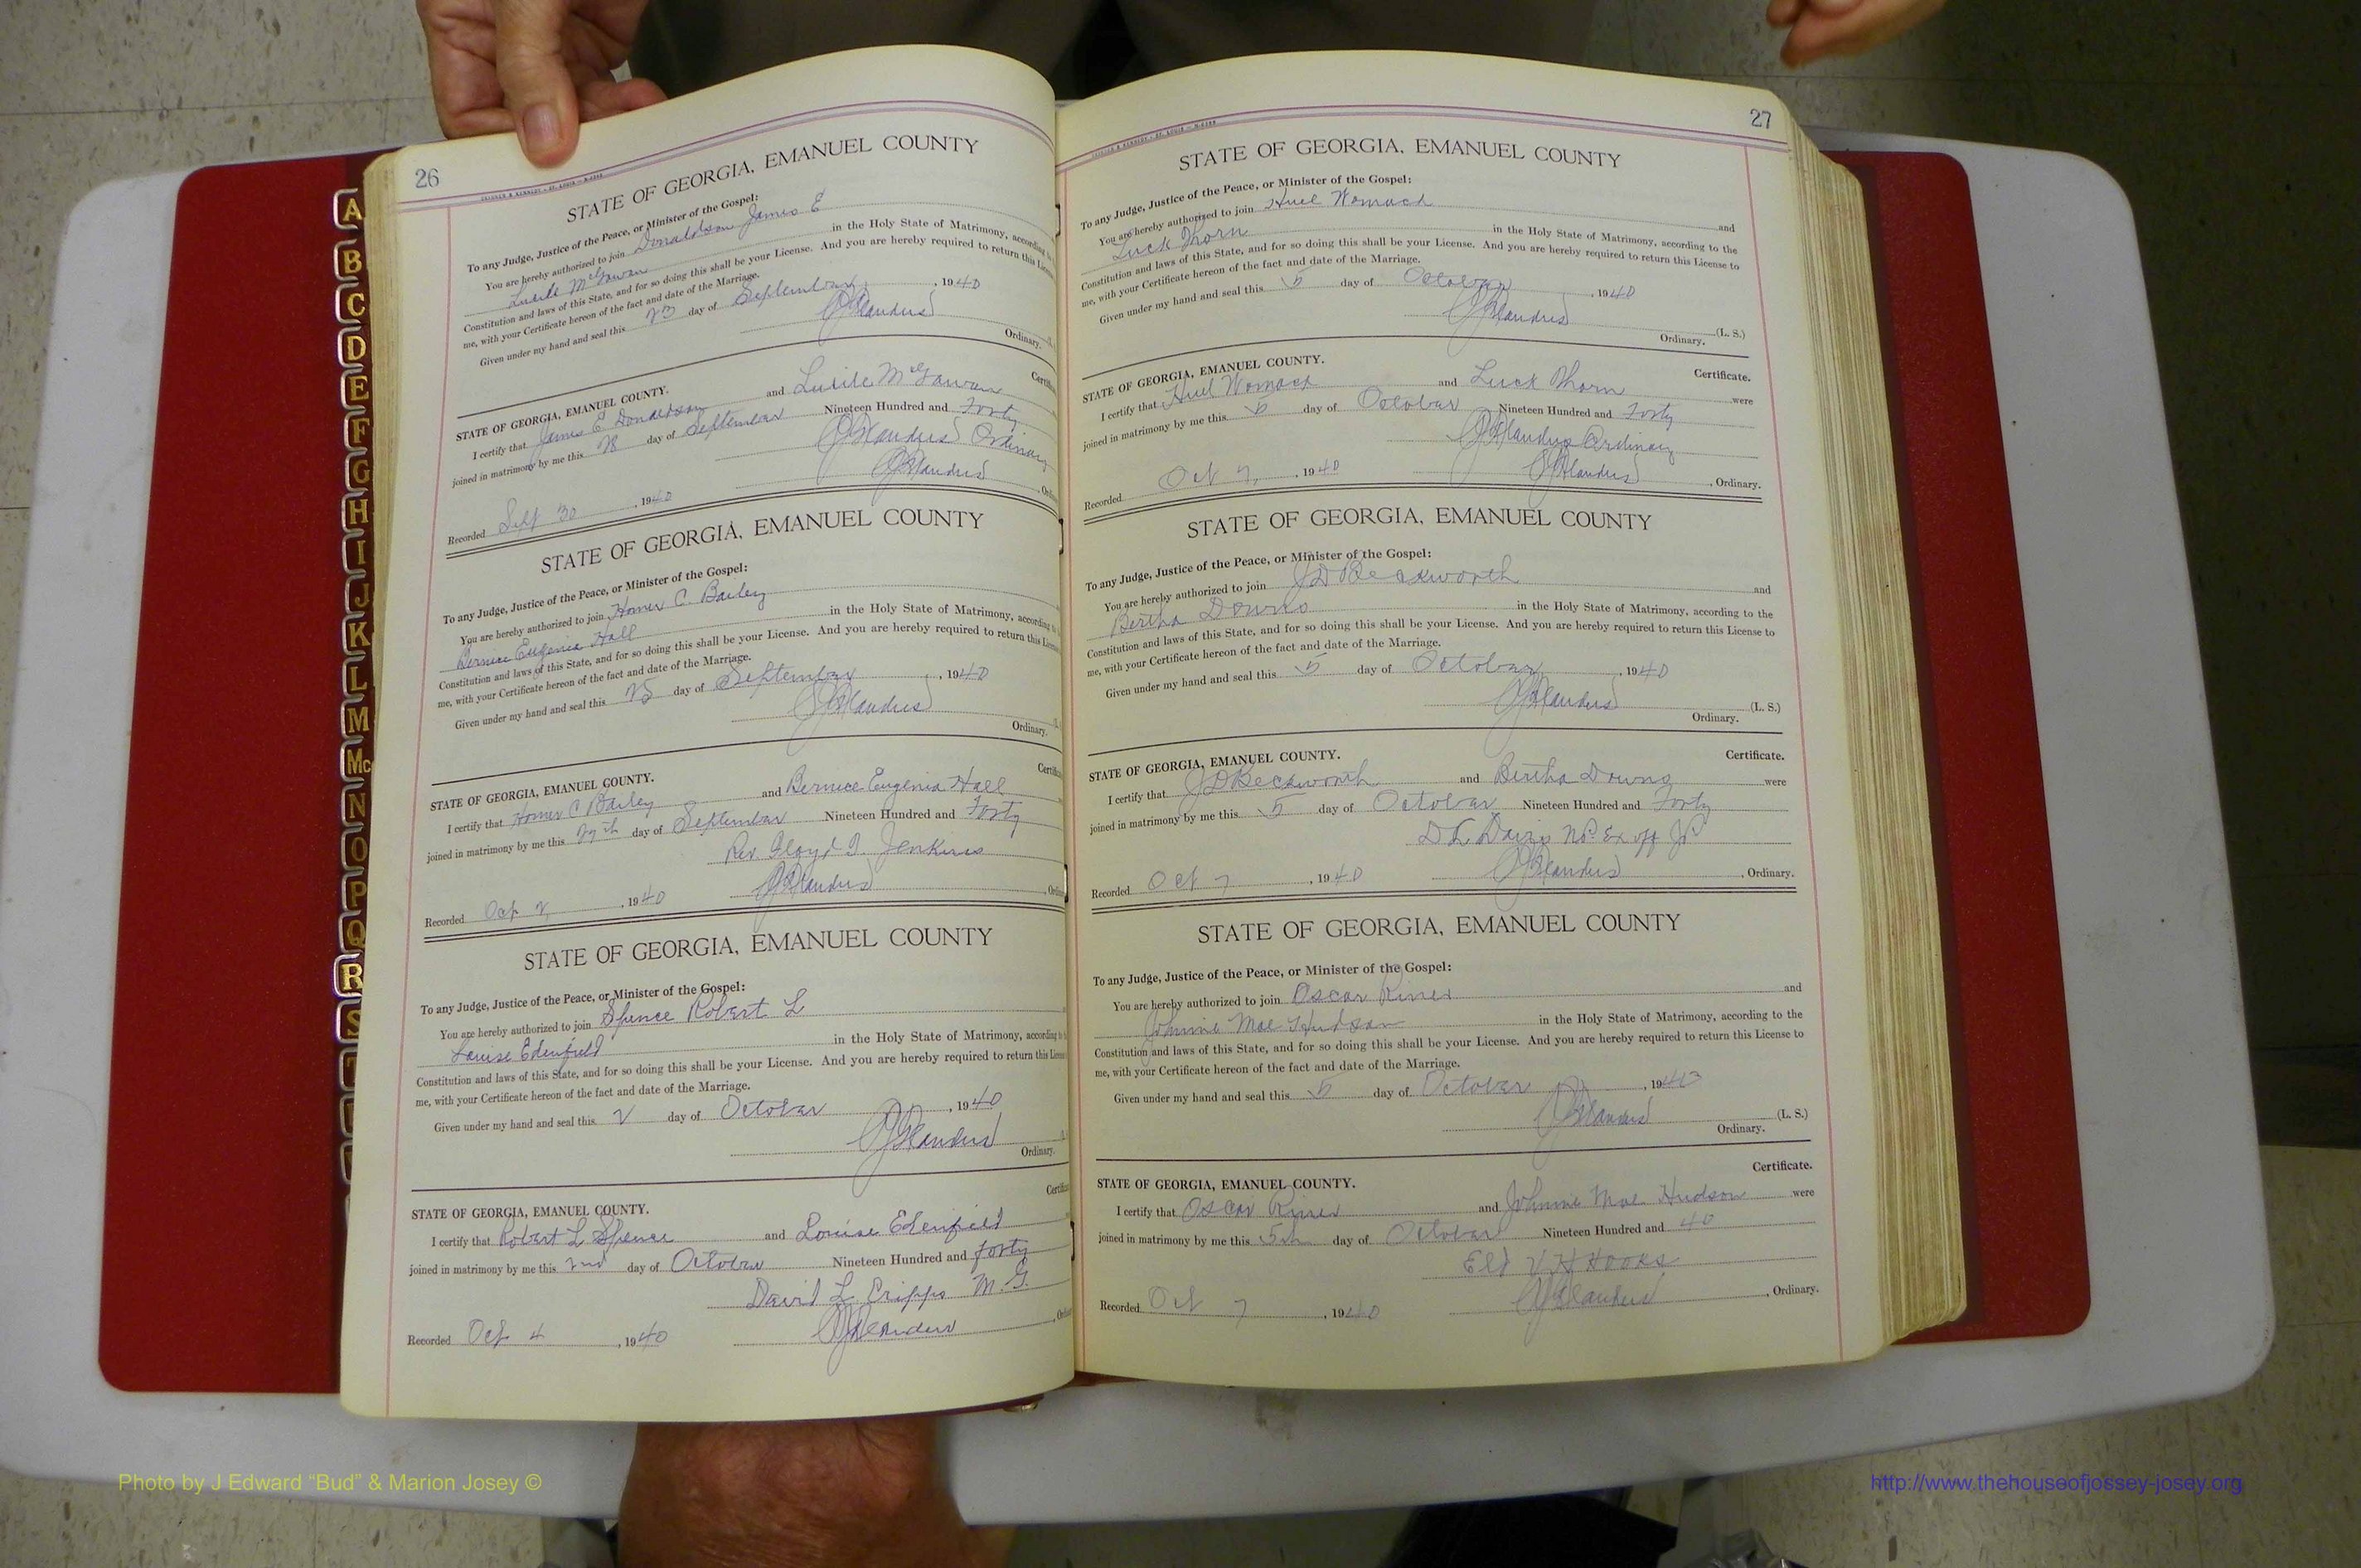 26
STATE OF GEORGIA, EMANUEL COUNTY
To any Judge, Justice of the Peace, or Minister of the Gospel:
You are hereby authorized to join Donaldson James E
Lucile McGowan in the Holy State of Matrimony, according
Constitution and laws of this State, and for so doing this shall be your License. And you are hereby required to return this
me, with your Certificate hereon of the fact and date of the Marriage.
Given under my hand and seal this 23 day of September, 1940
Ordinary.
Certific
STATE OF GEORGIA, EMANUEL COUNTY.
I certify that James E Donaldson and Lucile McGowan
joined in matrimony by me this 28 day of September Nineteen Hundred and Forty
Ordinary
Recorded Sept 30, 1940
STATE OF GEORGIA, EMANUEL COUNTY
To any Judge, Justice of the Peace, or Minister of the Gospel:
You are hereby authorized to join Homer C. Bailey
Bernice Eugenia Hall in the Holy State of Matrimony, according
Constitution and laws of this State, and for so doing this shall be your License. And you are hereby required to return this
me, with your Certificate hereon of the fact and date of the Marriage.
Given under my hand and seal this 25 day of September, 1940
Ordinary.
Certific
STATE OF GEORGIA, EMANUEL COUNTY.
I certify that Homer C Bailey and Bernice Eugenia Hall
joined in matrimony by me this 29th day of September Nineteen Hundred and Forty
Rev. Floyd Jenkins
Recorded Oct 2, 1940
STATE OF GEORGIA, EMANUEL COUNTY
To any Judge, Justice of the Peace, or Minister of the Gospel:
You are hereby authorized to join Spence Robert L
Louise Edenfield in the Holy State of Matrimony, according
Constitution and laws of this State, and for so doing this shall be your License. And you are hereby required to return this
me, with your Certificate hereon of the fact and date of the Marriage.
Given under my hand and seal this 2 day of October, 1940
Ordinary.
Certific
STATE OF GEORGIA, EMANUEL COUNTY.
I certify that Robert L Spence and Louise Edenfield
joined in matrimony by me this 2nd day of October Nineteen Hundred and forty
David L. Cripps M.G.
Recorded Oct 4, 1940
27
STATE OF GEORGIA, EMANUEL COUNTY
To any Judge, Justice of the Peace, or Minister of the Gospel:
You are hereby authorized to join Huel Womack and
Luck Thorn in the Holy State of Matrimony, according to the
Constitution and laws of this State, and for so doing this shall be your License. And you are hereby required to return this License to
me, with your Certificate hereon of the fact and date of the Marriage.
Given under my hand and seal this 5 day of October, 1940
(L. S.)
Ordinary.
Certificate.
STATE OF GEORGIA, EMANUEL COUNTY.
I certify that Huel Womack and Luck Thorn were
joined in matrimony by me this 5 day of October Nineteen Hundred and Forty
Ordinary
Recorded Oct 7, 1940 , Ordinary.
STATE OF GEORGIA, EMANUEL COUNTY
To any Judge, Justice of the Peace, or Minister of the Gospel:
You are hereby authorized to join J D Beckworth and
Bertha Downs in the Holy State of Matrimony, according to the
Constitution and laws of this State, and for so doing this shall be your License. And you are hereby required to return this License to
me, with your Certificate hereon of the fact and date of the Marriage.
Given under my hand and seal this 5 day of October, 1940
(L. S.)
Ordinary.
Certificate.
STATE OF GEORGIA, EMANUEL COUNTY.
I certify that J D Beckworth and Bertha Downs were
joined in matrimony by me this 5 day of October Nineteen Hundred and Forty
D L Davis N.P. Ex off JP
Recorded Oct 7, 1940 , Ordinary.
STATE OF GEORGIA, EMANUEL COUNTY
To any Judge, Justice of the Peace, or Minister of the Gospel:
You are hereby authorized to join Oscar Riner and
Johnnie Mae Hudson in the Holy State of Matrimony, according to the
Constitution and laws of this State, and for so doing this shall be your License. And you are hereby required to return this License to
me, with your Certificate hereon of the fact and date of the Marriage.
Given under my hand and seal this 5 day of October, 1940
(L. S.)
Ordinary.
Certificate.
STATE OF GEORGIA, EMANUEL COUNTY.
I certify that Oscar Riner and Johnnie Mae Hudson were
joined in matrimony by me this 5th day of October Nineteen Hundred and 40
Eld V H Hooks
Recorded Oct 7, 1940 , Ordinary.
A
B
C
D
E
F
G
H
I
J
K
L
M
Mc
N
O
P
Q
R
S
T
Photo by J Edward “Bud” & Marion Josey ©
http://www.thehouseofjossey-josey.org